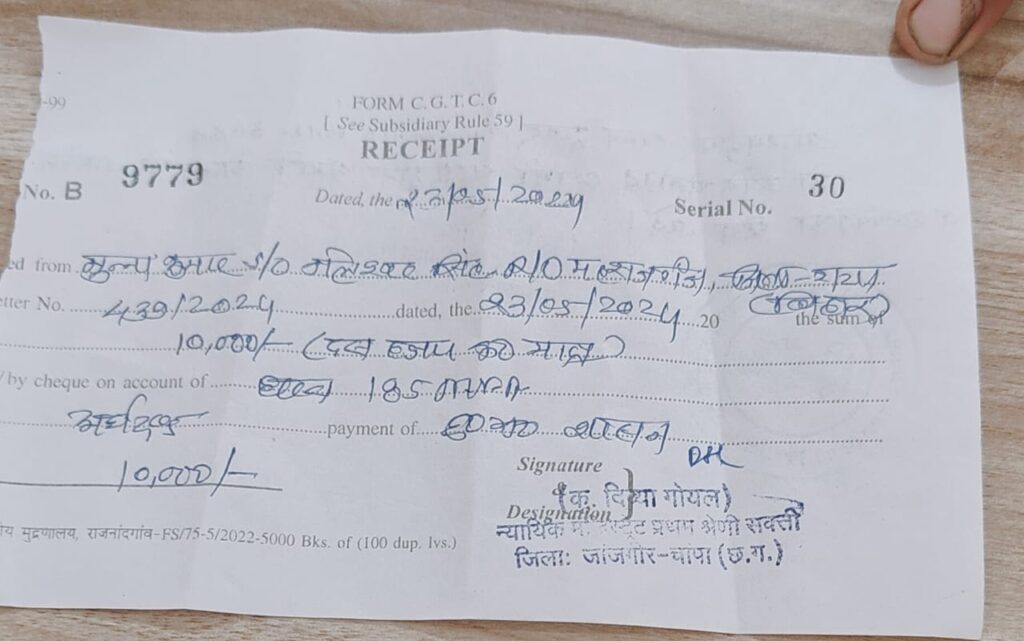 -99
FORM C.G.T.C.6
[ See Subsidiary Rule 59 ]
RECEIPT
No. B 9779
Dated, the 23/05/2024
Serial No. 30
ed from S/O सिंह R/O
etter No. 439/2024 dated, the 23/05/2024 20 the sum of
10,000/- (दस हजार रू मात्र)
/by cheque on account of धारा 185
अर्थदण्ड payment of
10,000/-
Signature
(कु. दिव्या गोयल)
Designation
न्यायिक मजिस्ट्रेट प्रथम श्रेणी सक्ती
जिला: जांजगीर-चांपा (छ.ग.)
ीय मुद्रणालय, राजनांदगांव-FS/75-5/2022-5000 Bks. of (100 dup. lvs.)